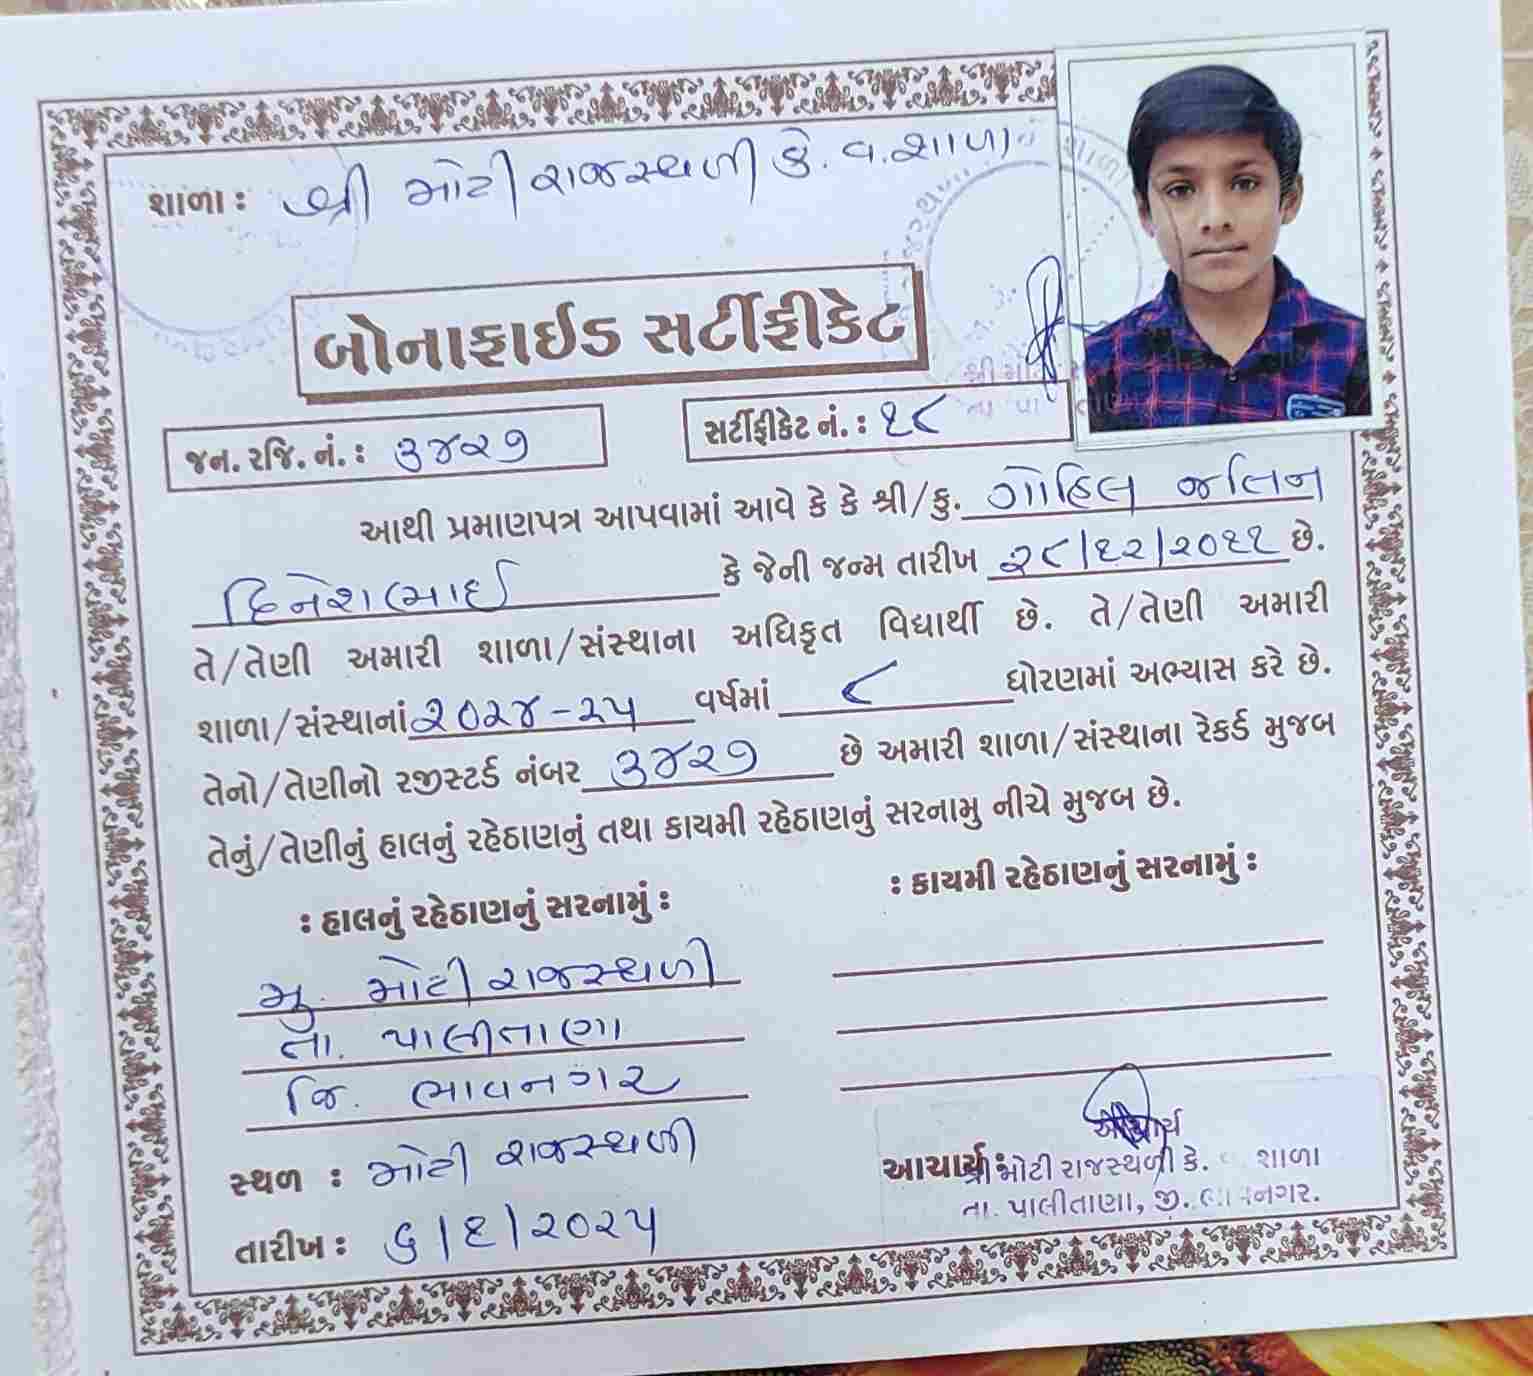 શાળા : શ્રી મોટી રાજસ્થળી કે. વ. શાળા
બોનાફાઈડ સર્ટીફીકેટ
જન. રજિ. નં. : ૩૪૨૭
સર્ટીફીકેટ નં. : ૧૮
આથી પ્રમાણપત્ર આપવામાં આવે કે કે શ્રી/કુ. ગોહિલ જલિન
દિનેશભાઈ કે જેની જન્મ તારીખ ૨૮/૧૨/૨૦૧૧ છે.
તે/તેણી અમારી શાળા/સંસ્થાના અધિકૃત વિદ્યાર્થી છે. તે/તેણી અમારી
શાળા/સંસ્થાનાં ૨૦૨૪-૨૫ વર્ષમાં ૮ ધોરણમાં અભ્યાસ કરે છે.
તેનો/તેણીનો રજીસ્ટર્ડ નંબર ૩૪૨૭ છે અમારી શાળા/સંસ્થાના રેકર્ડ મુજબ
તેનું/તેણીનું હાલનું રહેઠાણનું તથા કાયમી રહેઠાણનું સરનામુ નીચે મુજબ છે.
: હાલનું રહેઠાણનું સરનામું :
: કાયમી રહેઠાણનું સરનામું :
મુ. મોટી રાજસ્થળી
તા. પાલીતાણા
જિ. ભાવનગર
સ્થળ : મોટી રાજસ્થળી
તારીખ : ૬/૧/૨૦૨૫
આચાર્ય
આચાર્ય : શ્રી મોટી રાજસ્થળી કે. શાળા
તા. પાલીતાણા, જી. ભાવનગર.